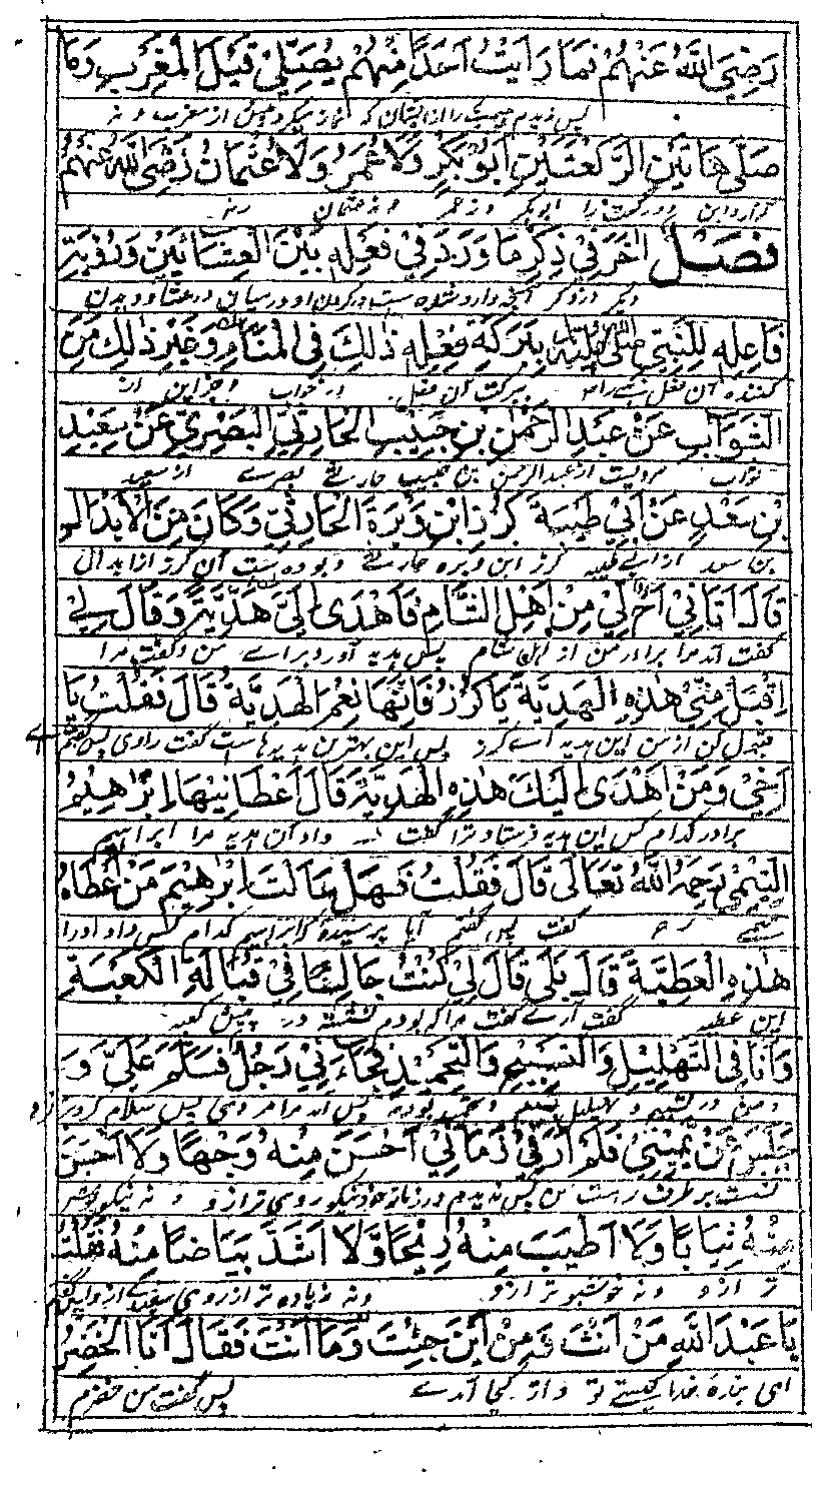 رَضِيَ اللهُ عَنْهُمْ فَمَا رَأَيْتُ أَحَدًا مِنْهُمْ يُصَلِّي قَبْلَ الْمَغْرِبِ وَمَا
پس ندیدم هیچ یک را از ایشان که نماز میکرد پیش از مغرب و نه
صَلَّى هَاتَيْنِ الرَّكْعَتَيْنِ أَبُوبَكْرٍ وَلَا عُمَرُ وَلَا عُثْمَانُ رَضِيَ اللهُ عَنْهُمْ
این دو رکعت را ابوبکر و نه عمر و نه عثمان رضـ
فَصْلٌ اٰخَرُ فِي ذِكْرِ مَا وَرَدَ فِي فَعْلِهِ بَيْنَ الْعِشَائَيْنِ وَرُؤْيَةِ
دیگر در ذکر آنچه وارد شده است در کردن او در میان دو عشا و دیدن
فَاعِلِهِ لِلنَّبِيِّ صلى الله عليه بِبَرَكَةِ فِعْلِهِ ذٰلِكَ فِي الْمَنَامِ وَغَيْرِ ذٰلِكَ مِنَ
کننده آن فعل ببرکت آن فعل در خواب و جز این از
الثَّوَابِ عَنْ عَبْدِ الرَّحْمٰنِ بْنِ حَبِيْبِ الْحَارِثِيِّ الْبَصْرِيِّ عَنْ سَعِيْدِ
ثواب مرویست از عبدالرحمن بن حبیب حارثی بصرے از سعید
بْنِ سَعْدٍ عَنْ أَبِي طَيْبَةَ كُرْزِ ابْنِ وَبْرَةَ الْحَارِثِيِّ وَكَانَ مِنَ الْأَبْدَالِ
بن سعد از ابی طیبه کرز ابن وبره حارثی و بوده است آن کرز از ابدال
قَالَ أَتَانِيْ أَخٌ لِيْ مِنْ أَهْلِ الشَّامِ فَأَهْدَى إِلَيَّ هَدِيَّةً وَقَالَ لِيْ
گفت آمد مرا برادر من از اهل شام پس هدیه آورد براے من و گفت مرا
اِقْبَلْ مِنِّيْ هٰذِهِ الْهَدِيَّةَ يَا كُرْزُ فَإِنَّهَا نِعْمَ الْهَدِيَّةُ قَالَ فَقُلْتُ يَا
قبول کن از من این هدیه اے کرز پس این بهترین هدیه ها ست گفت راوی پس گفتم اے
أَخِيْ وَمَنْ أَهْدَى إِلَيْكَ هٰذِهِ الْهَدِيَّةَ قَالَ أَعْطَانِيْهَا إِبْرَاهِيْمُ
برادر کدام کس این هدیه فرستاد ترا گفت داد آن هدیه مرا ابراهیم
التَّيْمِيُّ رَحِمَهُ اللهُ تَعَالَى قَالَ فَقُلْتُ فَهَلْ سَأَلْتَ إِبْرٰهِيْمَ مَنْ أَعْطَاهُ
تیمی رح گفت پس گفتم آیا پرسیدی ابراهیم کدام کس داد او را
هٰذِهِ الْعَطِيَّةَ قَالَ بَلَى قَالَ لِيْ كُنْتُ جَالِسًا فِيْ قُبَالَةِ الْكَعْبَةِ
این عطیه گفت آرے گفت مرا که بودم نشسته در پیش کعبه
وَأَنَا فِي التَّهْلِيْلِ وَالتَّسْبِيْحِ وَالتَّحْمِيْدِ فَجَاءَنِيْ رَجُلٌ فَسَلَّمَ عَلَيَّ وَ
و من در تهلیل و تسبیح و تحمید بودم پس آمد مرا مردی پس سلام کرد
جَلَسَ عَنْ يَمِيْنِيْ فَلَمْ أَرَ فِيْ زَمَانِيْ أَحْسَنَ مِنْهُ وَجْهًا وَلَا أَحْسَنَ
نشست بر طرف راست من پس ندیدم در زمانه خود نیکو روی تر از و و نه نیکو
مِنْهُ ثِيَابًا وَلَا أَطْيَبَ مِنْهُ رِيْحًا وَلَا أَشَدَّ بَيَاضًا مِنْهُ فَقُلْتُ
تر از و و نه خوشبو تر از و و نه زیاده تر از روی سفیدے از و پس گفتم
يَا عَبْدَ اللهِ مَنْ أَنْتَ وَمِنْ أَيْنَ جِئْتَ وَمَا أَنْتَ فَقَالَ أَنَا الْخَضِرُ
ای بنده خدا کیستی تو و از کجا آمدے پس گفت من خضرم